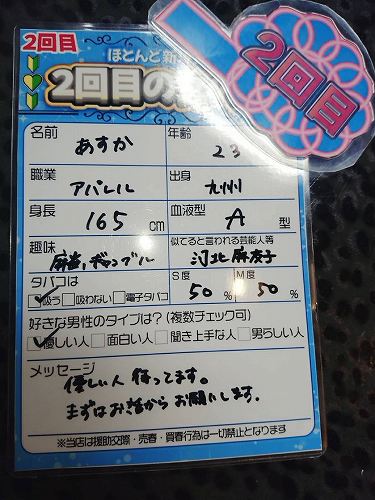 2回目
ほとんど新
2回目の
2回目
名前 あすか 年齢 23
職業 アパレル 出身 九州
身長 165cm 血液型 A型
趣味 麻雀、ギャンブル 似てると言われる芸能人等 河北麻友子
タバコは S度 M度
吸う 吸わない 電子タバコ 50% 50%
好きな男性のタイプは?(複数チェック可)
優しい人 面白い人 聞き上手な人 男らしい人
メッセージ
優しい人 待ってます。
まずはお話から お願いします。
※当店は援助交際・売春・買春行為は一切禁止となります